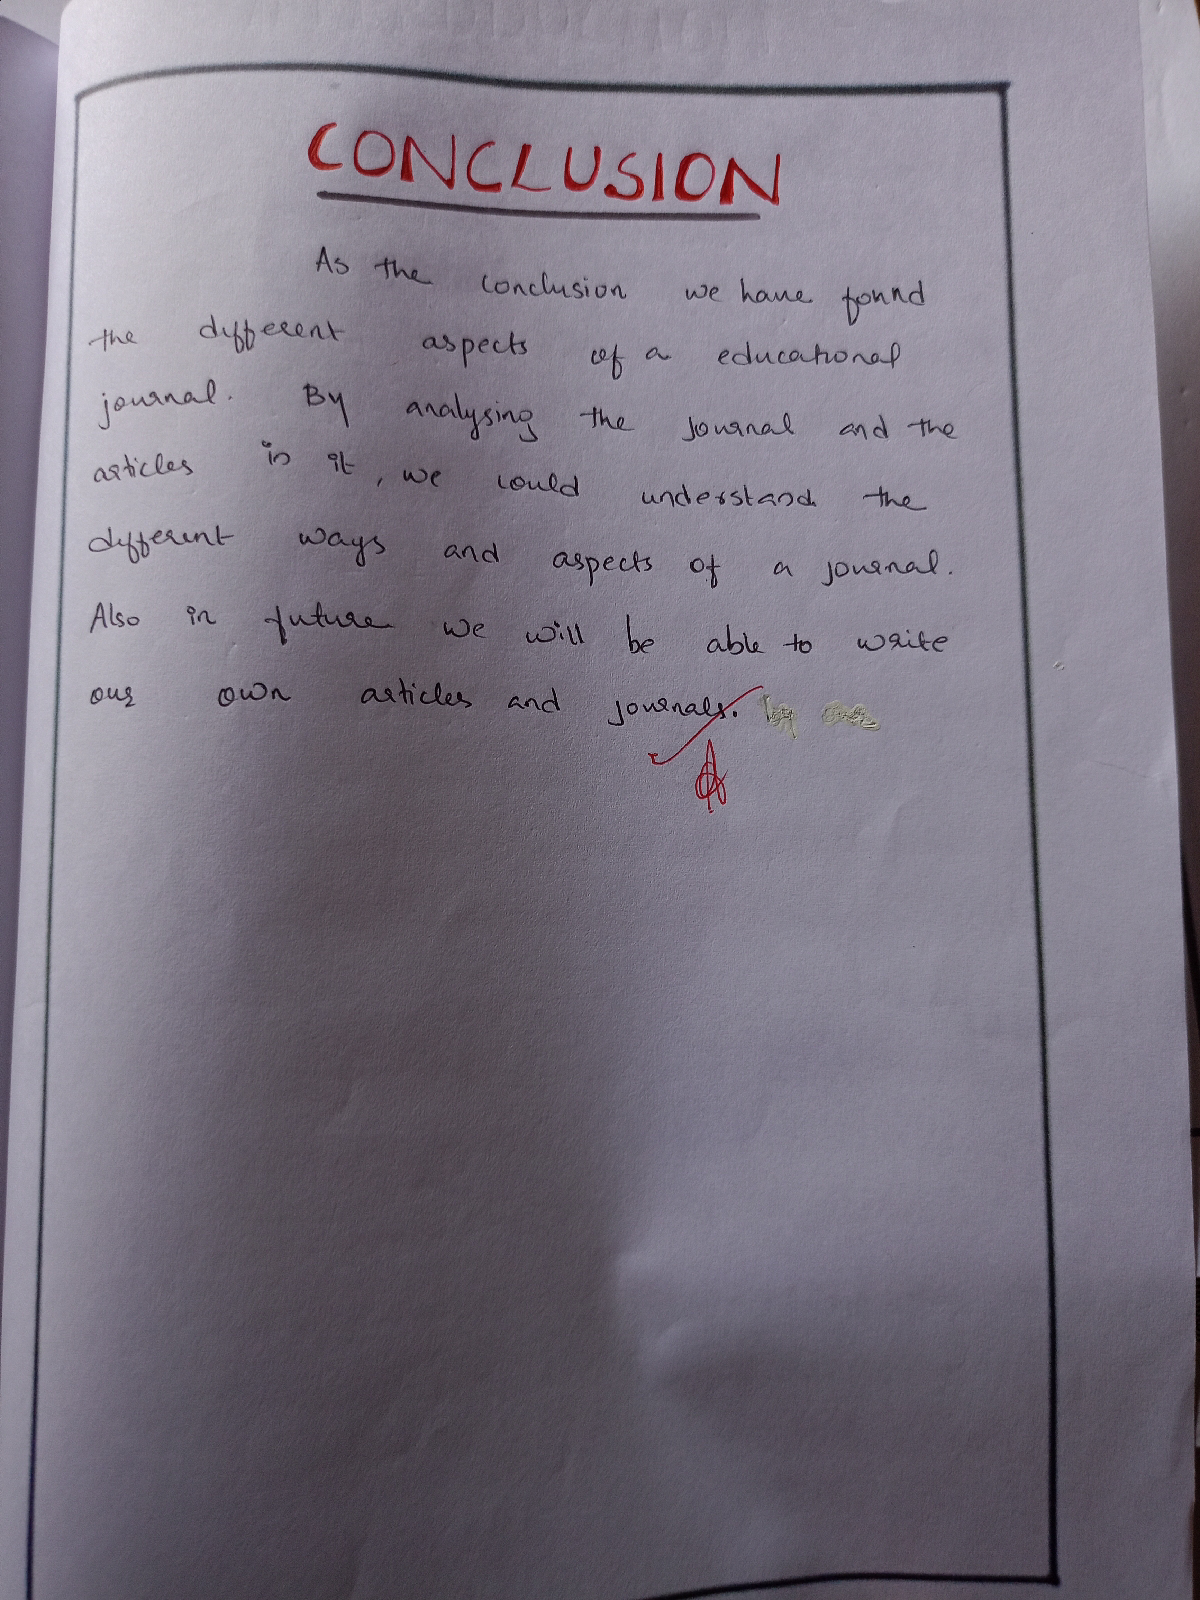 CONCLUSION
As the conclusion we have found
the different aspects of a educational
journal. By analysing the journal and the
articles in it, we could understand the
different ways and aspects of a journal.
Also in future we will be able to write
our own articles and journals.